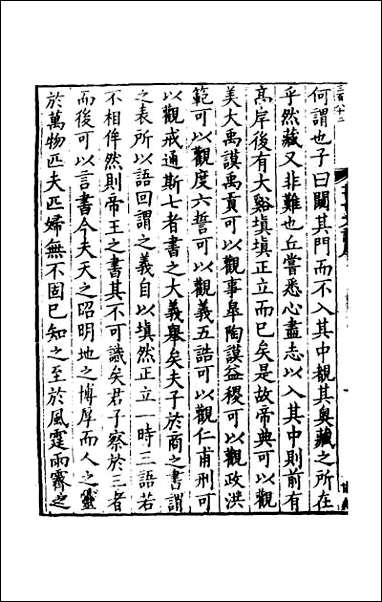 何謂也子曰闚其門而不入其中觀其奥藏之所在
乎然藏又非難也丘嘗悉心盡志以入其中則前有
髙岸後有大谿填填正立而已矣是故帝典可以觀
美大禹謨禹貢可以觀事臯陶謨益稷可以觀政洪
範可以觀度六誓可以觀義五誥可以觀仁甫刑可
以觀戒通斯七者書之大義舉矣夫子於商之書謂
之表所以語回謂之義自以填然正立一時三語若
不相侔然則帝王之書其不可議矣君子察於三者
而後可以言書今夫天之昭明地之博厚而人之靈
於萬物匹夫匹婦無不固已知之至於風霆雨霽之